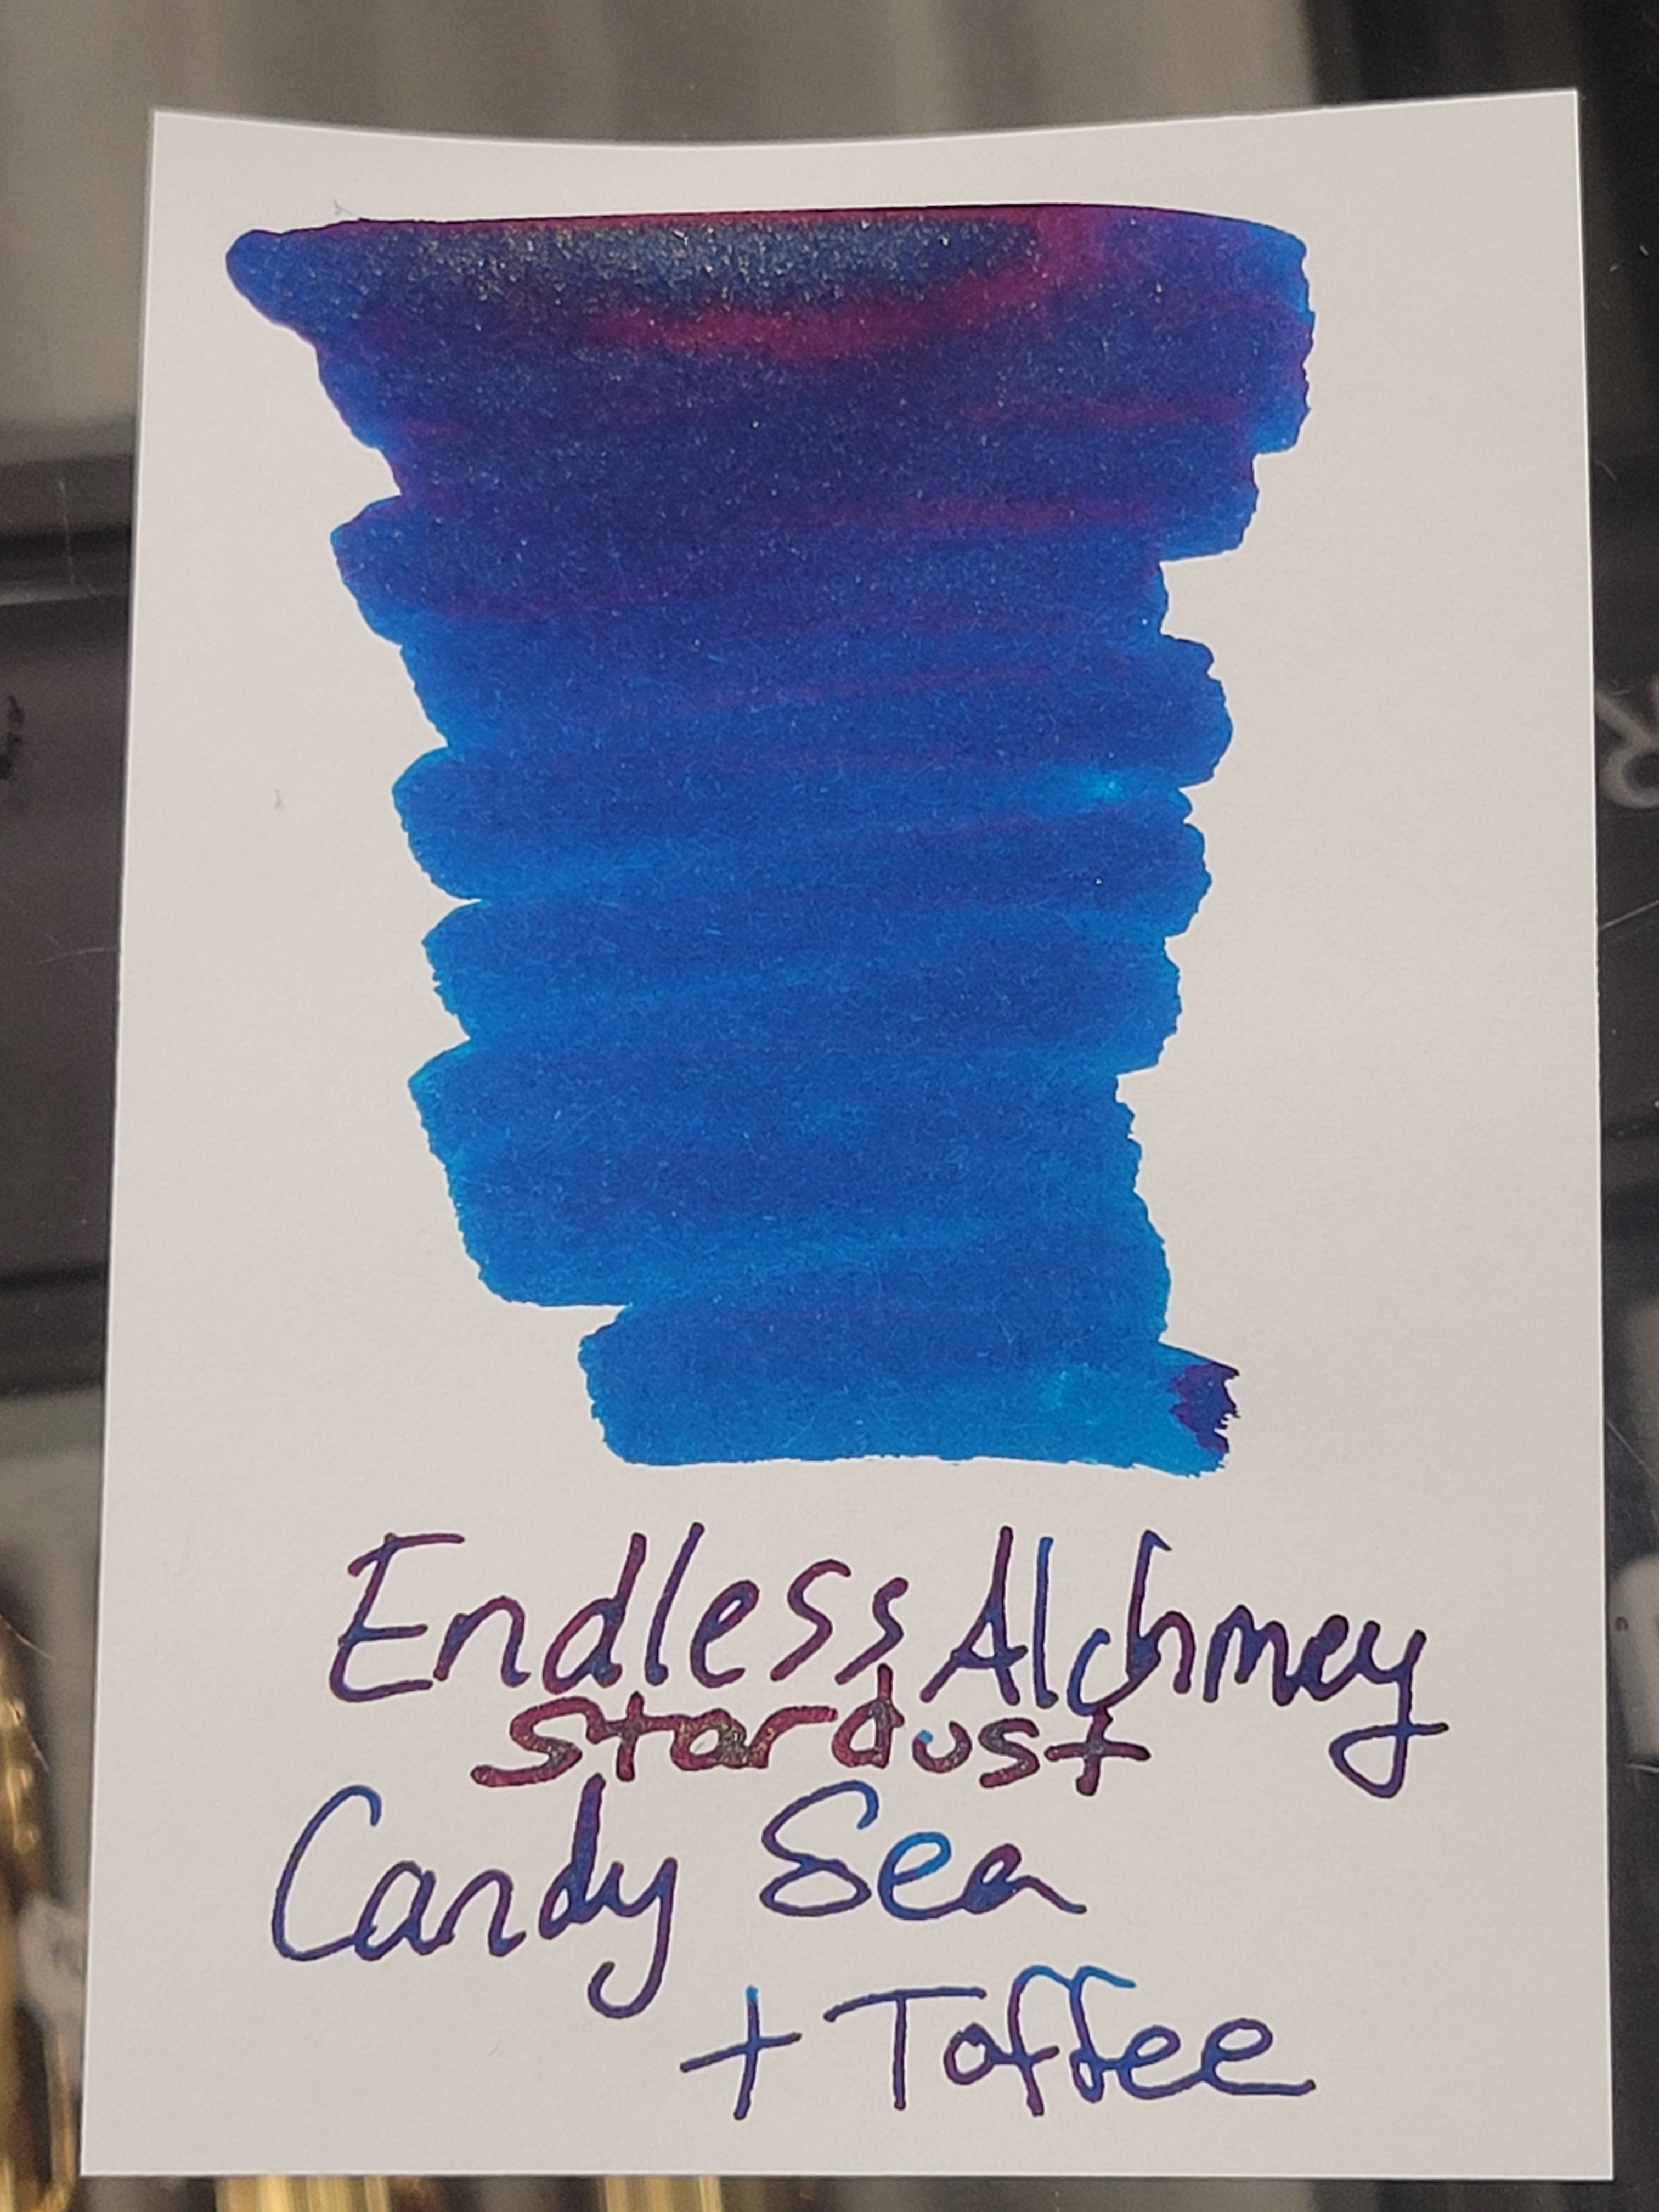 Endless Alchmey
stardust
Candy Sea
+ Toffee